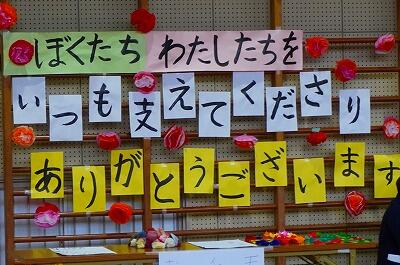 ぼくたち わたしたちを
いつも支えてくださり
ありがとうございます